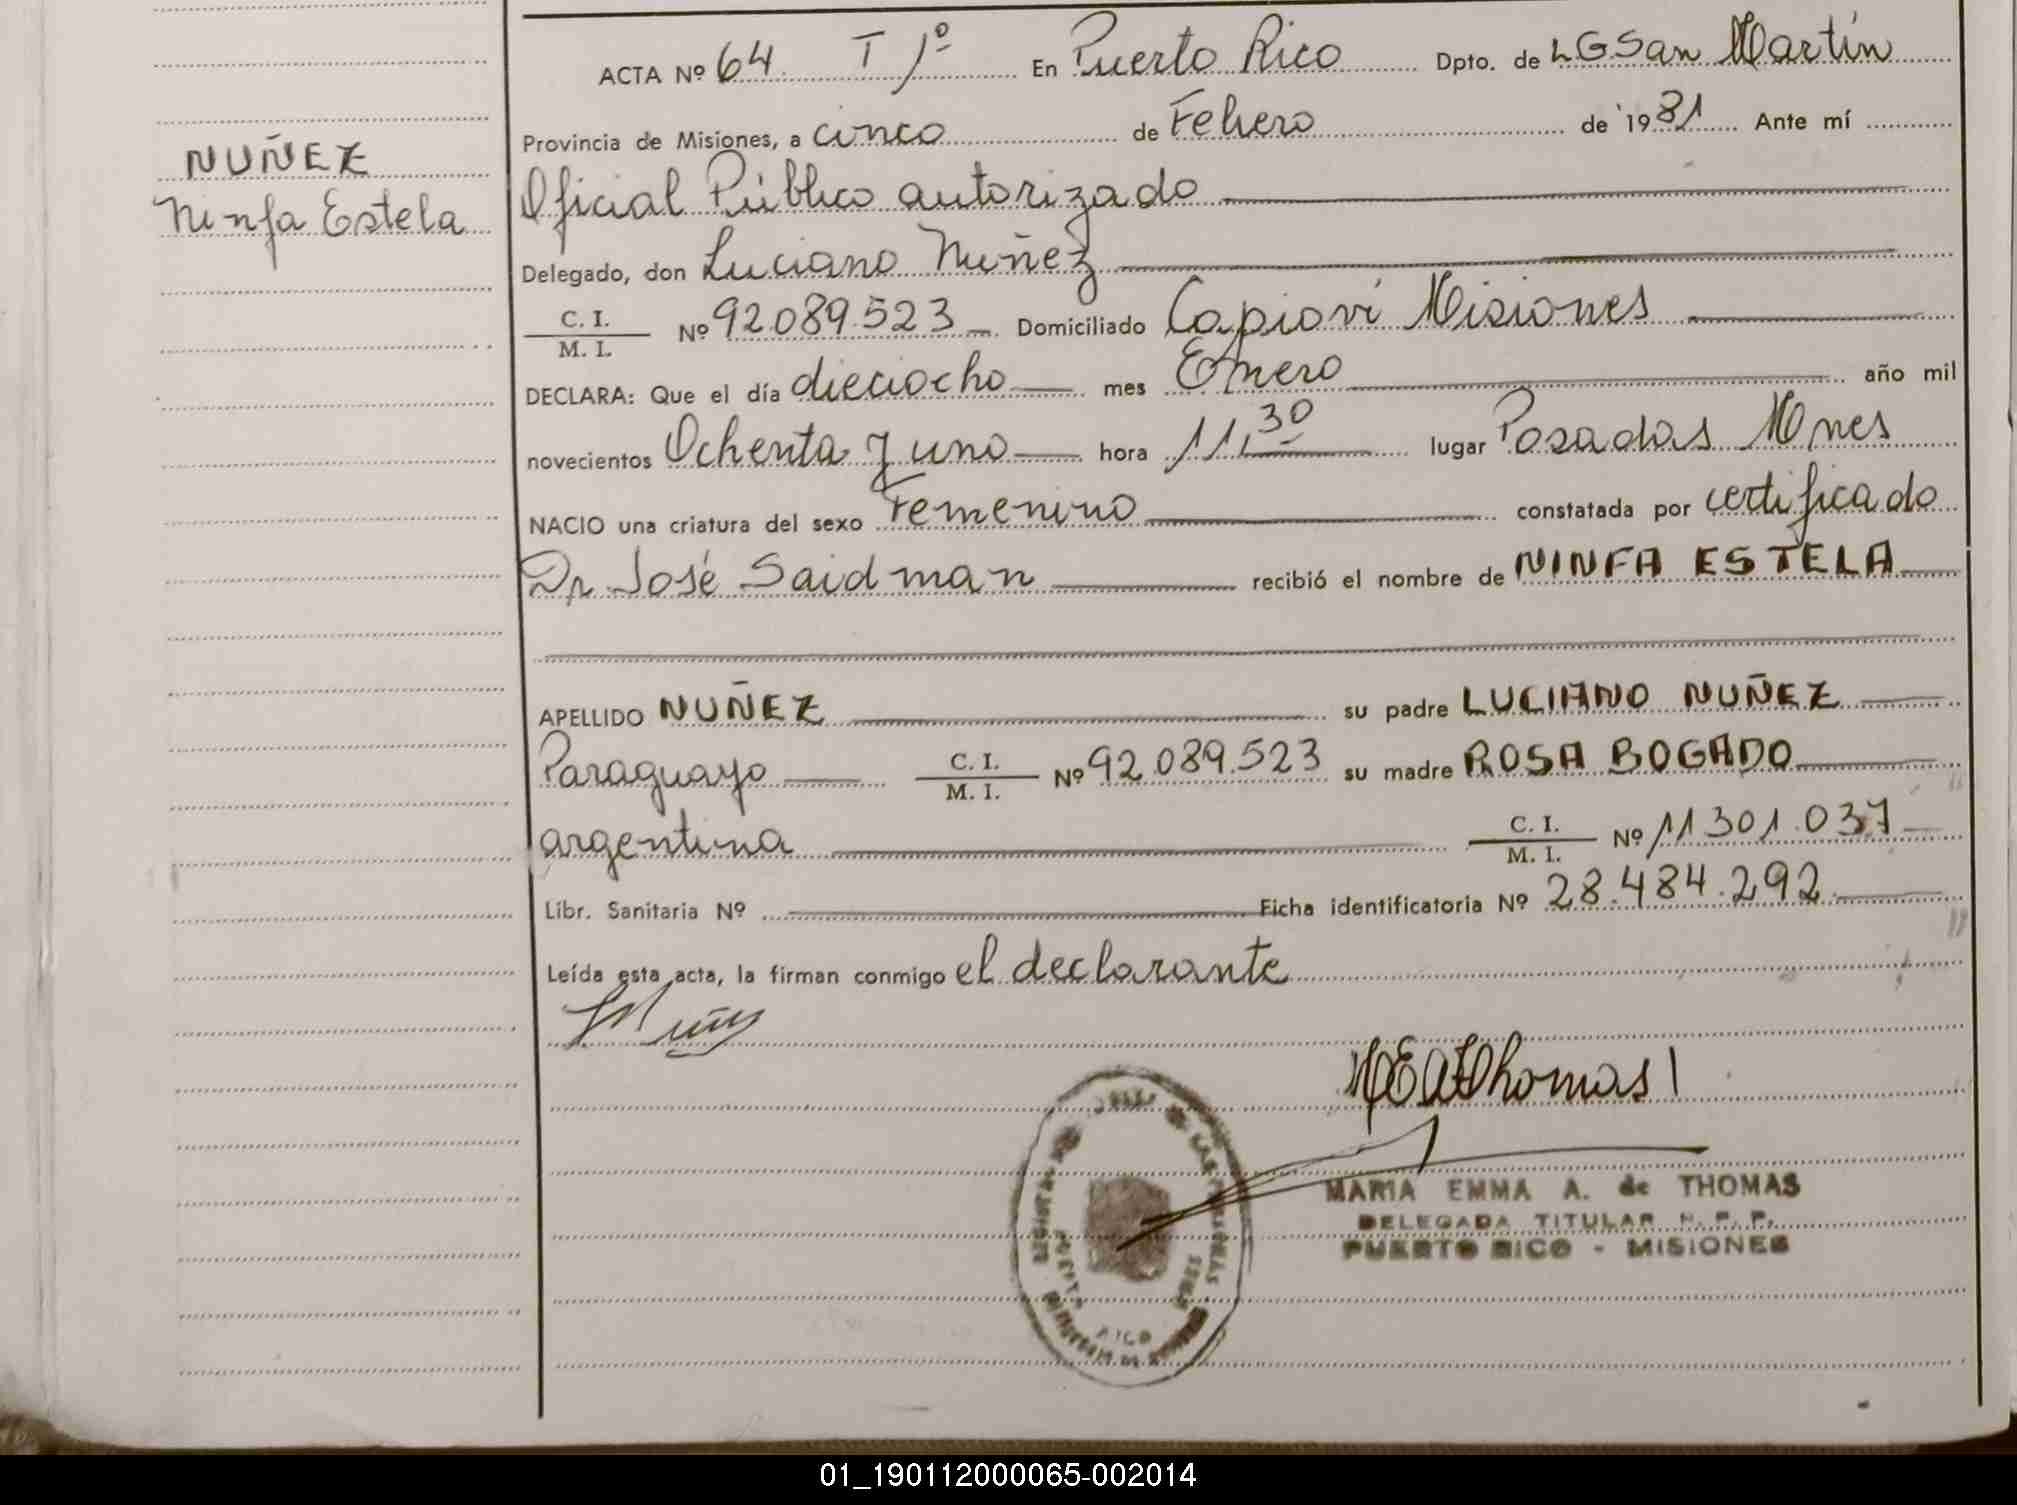 NUÑEZ
Ninfa Estela
ACTA Nº 64 T 1º En Puerto Rico Dpto. de LG San Martín
Provincia de Misiones, a cinco de Febrero de 1981 Ante mí
Oficial Público autorizado
Delegado, don Luciano Nuñez
C. I.
M. I.
Nº 92.089.523 Domiciliado Capioví Misiones
DECLARA: Que el día dieciocho mes Enero año mil
novecientos Ochenta y uno hora 11,30 lugar Posadas Mnes
NACIO una criatura del sexo Femenino constatada por certificado
Dr José Saidman recibió el nombre de NINFA ESTELA
APELLIDO NUÑEZ su padre LUCIANO NUÑEZ
Paraguayo C. I. M. I. Nº 92.089.523 su madre ROSA BOGADO
argentina C. I. M. I. Nº 11301.037
Libr. Sanitaria Nº Ficha identificatoria Nº 28.484.292
Leída esta acta, la firman conmigo el declarante
MARIA EMMA A. de THOMAS
DELEGADA TITULAR R. P. P.
PUERTO RICO - MISIONES
01_190112000065-002014